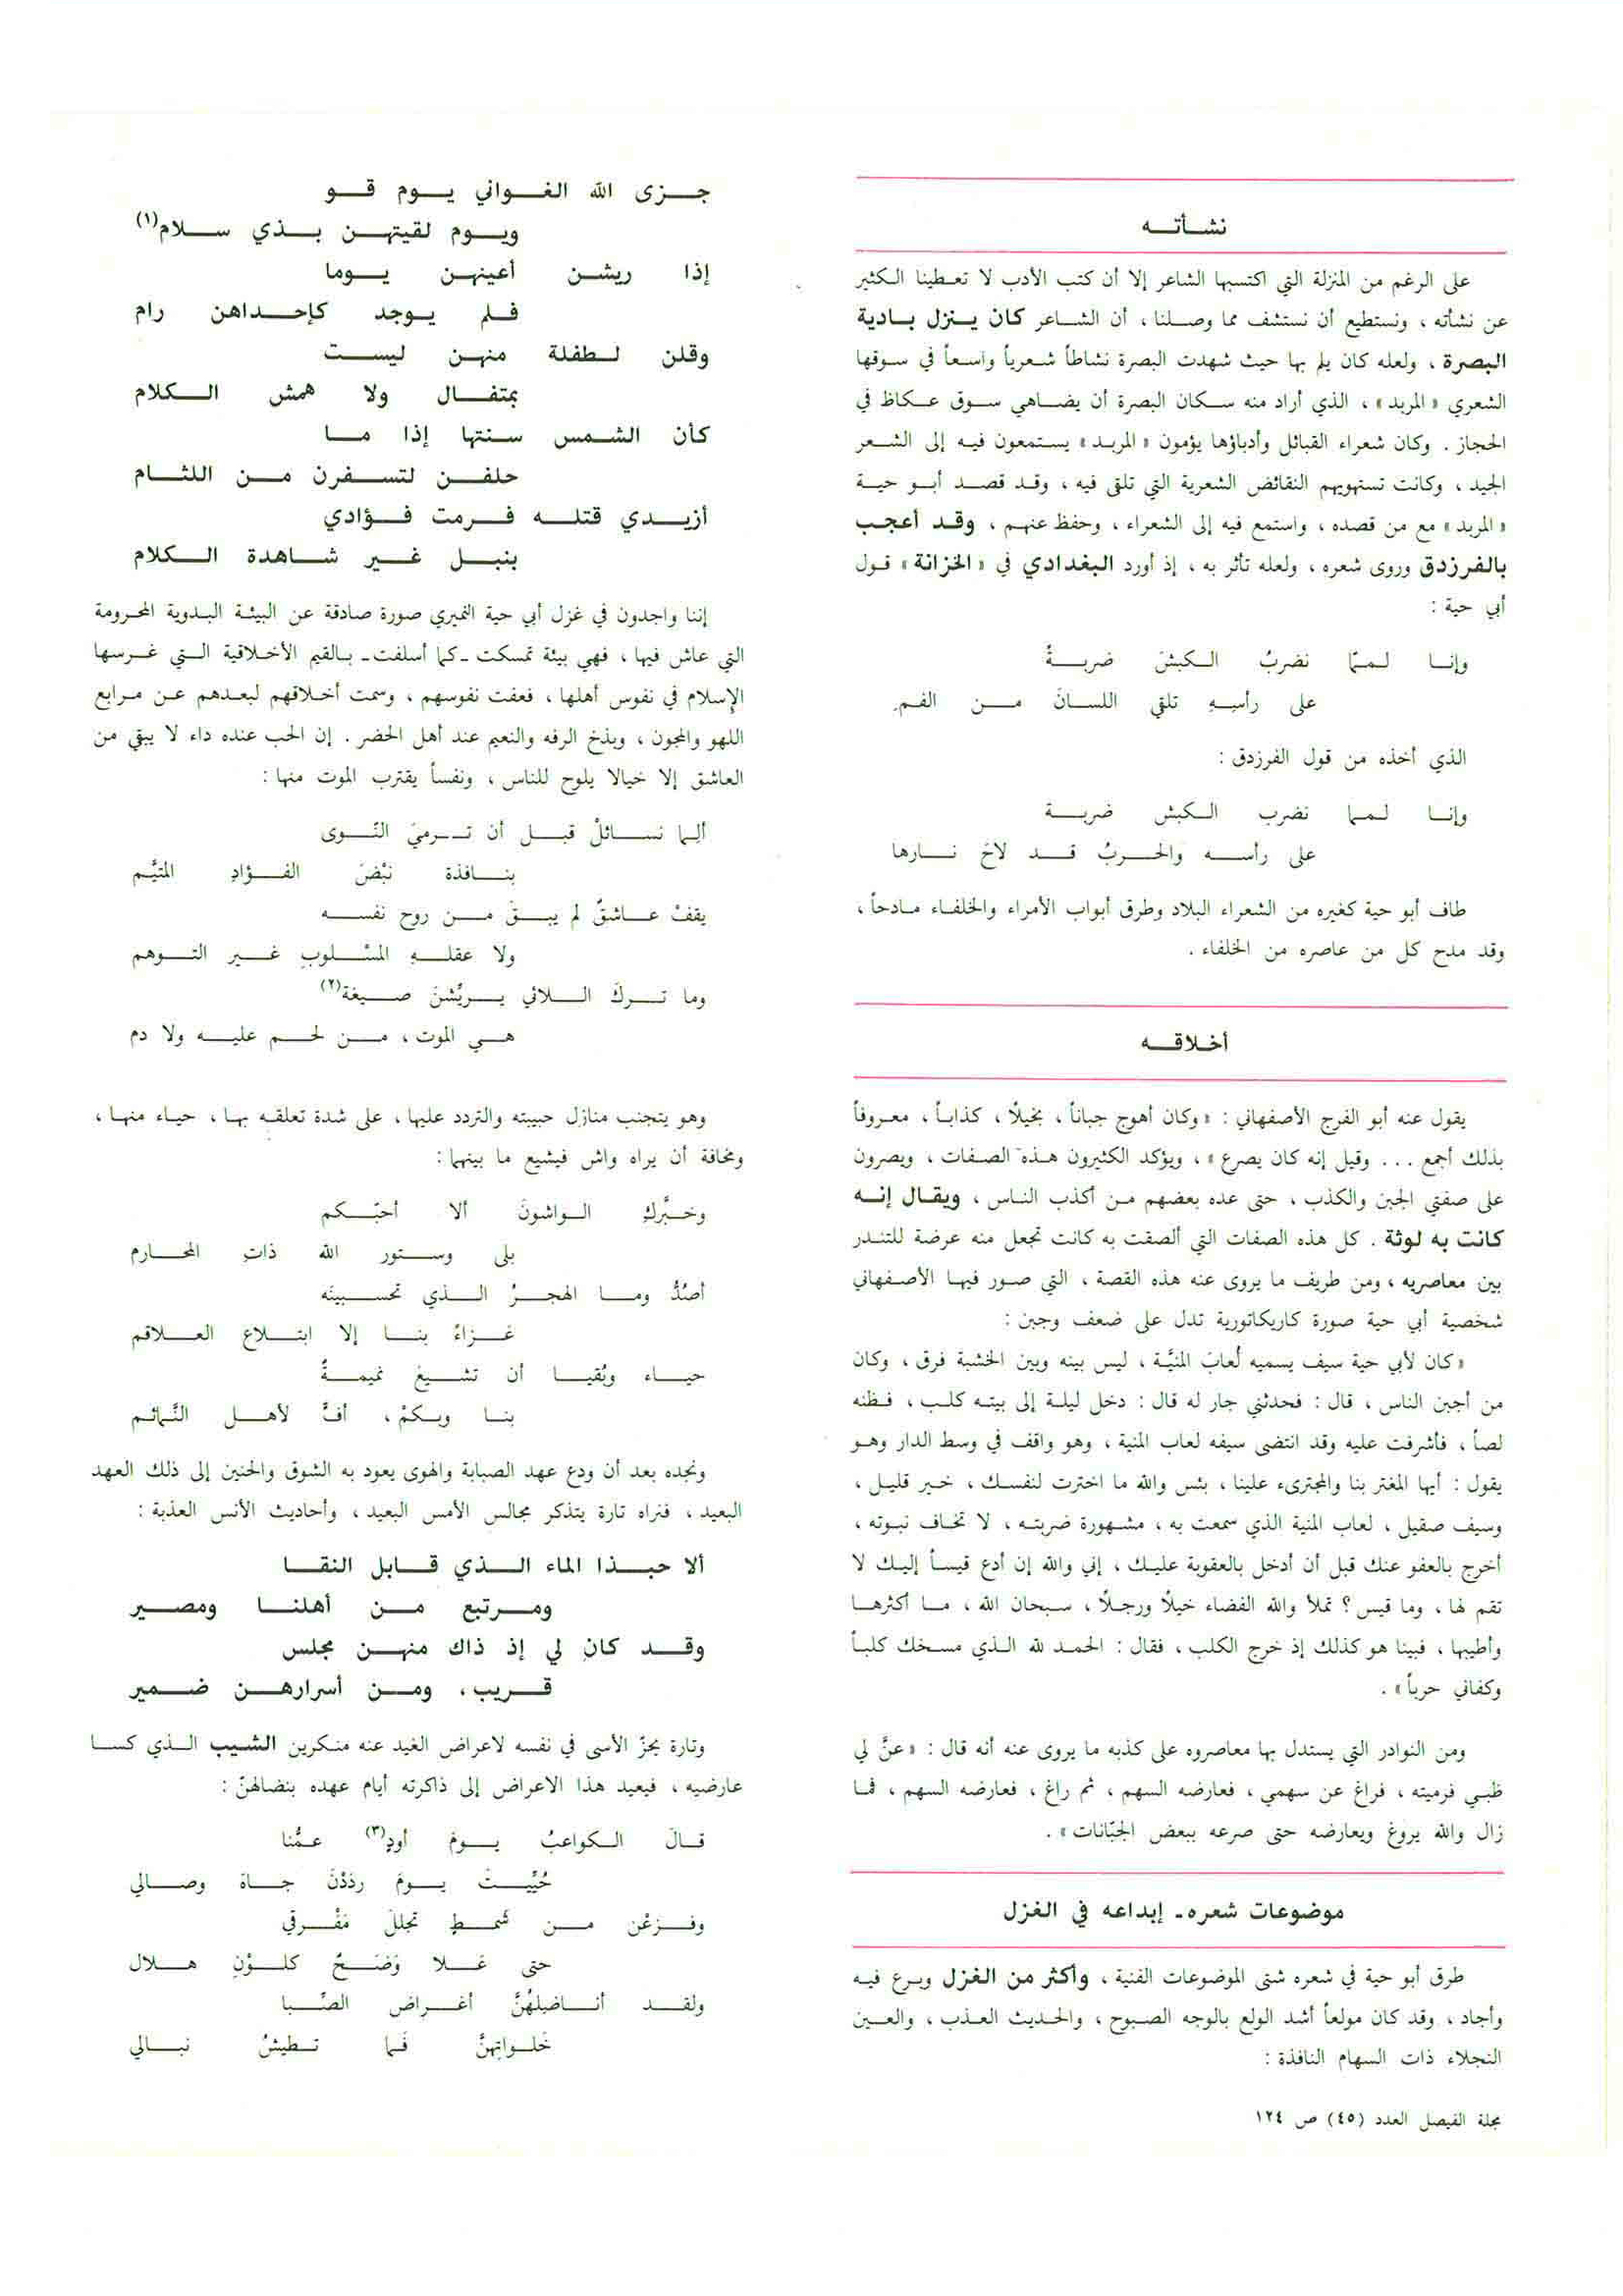 نشأته
على الرغم من المنزلة التي اكتسبها الشاعر إلا أن كتب الأدب لا تعطينا الكثير
عن نشأته ، ونستطيع أن نستشف مما وصلنا ، أن الشاعر كان ينزل بادية
البصرة ، ولعله كان يلم بها حيث شهدت البصرة نشاطاً شعرياً واسعاً في سوقها
الشعري «المربد» ، الذي أراد منه سكان البصرة أن يضاهي سوق عكاظ في
الحجاز . وكان شعراء القبائل وأدباؤها يؤمون «المربد» يستمعون فيه إلى الشعر
الجيد ، وكانت تستهويهم النقائض الشعرية التي تلقى فيه ، وقد قصد أبو حية
«المربد» مع من قصده ، واستمع فيه إلى الشعراء ، وحفظ عنهم ، وقد أعجب
بالفرزدق وروى شعره ، ولعله تأثر به ، إذ أورد البغدادي في «الخزانة» قول
أبي حية :
وإنا لممّا نضربُ الكبشَ ضربةً
على رأسهِ تلقي اللسانَ من الفم.
الذي أخذه من قول الفرزدق :
وإنا لمما نضرب الكبش ضربة
على رأسه والحربُ قد لاحَ نارها
طاف أبو حية كغيره من الشعراء البلاد وطرق أبواب الأمراء والخلفاء مادحاً ،
وقد مدح كل من عاصره من الخلفاء .
أخلاقه
يقول عنه أبو الفرج الأصفهاني : «وكان أهوج جباناً ، بخيلًا ، كذاباً ، معروفاً
بذلك أجمع ... وقيل إنه كان يصرع» ، ويؤكد الكثيرون هذه الصفات ، ويصرون
على صفتي الجبن والكذب ، حتى عده بعضهم من أكذب الناس ، ويقال إنه
كانت به لوثة . كل هذه الصفات التي ألصقت به كانت تجعل منه عرضة للتندر
بين معاصريه ، ومن طريف ما يروى عنه هذه القصة ، التي صور فيها الأصفهاني
شخصية أبي حية صورة كاريكاتورية تدل على ضعف وجبن :
«كان لأبي حية سيف يسميه لُعابَ المنيَّة ، ليس بينه وبين الخشبة فرق ، وكان
من أجبن الناس ، قال : فحدثني جار له قال : دخل ليلة إلى بيته كلب ، فظنه
لصاً ، فأشرفت عليه وقد انتضى سيفه لعاب المنية ، وهو واقف في وسط الدار وهو
يقول : أيها المغتر بنا والمجترىء علينا ، بئس والله ما اخترت لنفسك ، خير قليل ،
وسيف صقيل ، لعاب المنية الذي سمعت به ، مشهورة ضربته ، لا تخاف نبوته ،
أخرج بالعفو عنك قبل أن أدخل بالعقوبة عليك ، إني والله إن أدع قيساً إليك لا
تقم لها ، وما قيس؟ تملأ والله الفضاء خيلًا ورجلًا ، سبحان الله ، ما أكثرها
وأطيبها ، فبينا هو كذلك إذ خرج الكلب ، فقال : الحمد لله الذي مسخك كلباً
وكفاني حرباً» .
ومن النوادر التي يستدل بها معاصروه على كذبه ما يروى عنه أنه قال : «عنَّ لي
ظبي فرميته ، فراغ عن سهمي ، فعارضه السهم ، ثم راغ ، فعارضه السهم ، فما
زال والله يروغ ويعارضه حتى صرعه ببعض الجبّانات» .
موضوعات شعره ـ إبداعه في الغزل
طرق أبو حية في شعره شتى الموضوعات الفنية ، وأكثر من الغزل وبرع فيه
وأجاد ، وقد كان مولعاً أشد الولع بالوجه الصبوح ، والحديث العذب ، والعين
النجلاء ذات السهام النافذة :
مجلة الفيصل العدد (٤٥) ص ١٢٤
جزى الله الغواني يوم قو
ويوم لقيتهن بذي سلام(١)
إذا ريشن أعينهن يوما
فلم يوجد كإحداهن رام
وقلن لطفلة منهن ليست
بمتفال ولا همش الكلام
كأن الشمس سنتها إذا ما
حلفن لتسفرن من اللثام
أزيدي قتله فرمت فؤادي
بنبل غير شاهدة الكلام
إننا واجدون في غزل أبي حية النميري صورة صادقة عن البيئة البدوية المحرومة
التي عاش فيها ، فهي بيئة تمسكت ـ كما أسلفت ـ بالقيم الأخلاقية التي غرسها
الإسلام في نفوس أهلها ، فعفت نفوسهم ، وسمت أخلاقهم لبعدهم عن مرابع
اللهو والمجون ، وبذخ الرفه والنعيم عند أهل الحضر . إن الحب عنده داء لا يبقي من
العاشق إلا خيالا يلوح للناس ، ونفساً يقترب الموت منها :
ألِما نسائلْ قبل أن ترميَ النّوى
بنافذة نبْضَ الفؤادِ المتيَّم
يقفْ عاشقٌ لم يبقَ من روح نفسه
ولا عقلهِ المسْلوبِ غير التوهم
وما تركَ اللائي يريّشنَ صيغة(٢)
هي الموت ، من لحم عليه ولا دم
وهو يتجنب منازل حبيبته والتردد عليها ، على شدة تعلقه بها ، حياء منها ،
ومخافة أن يراه واش فيشيع ما بينهما :
وخبَّركِ الواشونَ ألا أحبّكم
بلى وستور الله ذاتِ المحارم
أصُدُّ وما الهجرُ الذي تحسبينَه
عزاءً بنا إلا ابتلاع العلاقم
حياء وبُقيا أن تشيعَ نميمةٌ
بنا وبكمْ ، أفَّ لأهل النَّمائم
ونجده بعد أن ودع عهد الصبابة والهوى يعود به الشوق والحنين إلى ذلك العهد
البعيد ، فنراه تارة يتذكر مجالس الأمس البعيد ، وأحاديث الأنس العذبة :
ألا حبذا الماء الذي قابل النقا
ومرتبع من أهلنا ومصير
وقد كان لي إذ ذاك منهن مجلس
قريب ، ومن أسرارهن ضمير
وتارة يحزّ الأسى في نفسه لاعراض الغيد عنه منكرين الشيب الذي كسا
عارضيه ، فيعيد هذا الاعراض إلى ذاكرته أيام عهده بنضالهنّ :
قالَ الكواعبُ يومَ أودٍ(٣) عمُّنا
حُيِّيتَ يومَ ردَدْنَ جاهَ وصالي
وفزعْن من شَمطٍ تجللَ مَفْرقي
حتى عَلا وَضَحٌ كلوْنِ هلال
ولقد أناضلهُنَّ أغراض الصِّبا
خَلواتِهنَّ فَما تطيشُ نبالي